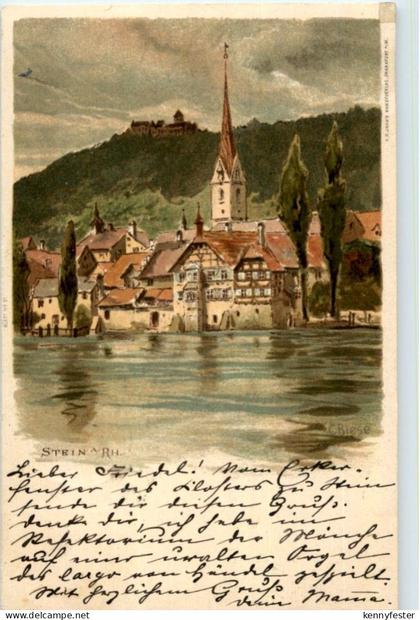 C. Biese
STEIN A/RH.
Lieber Friedel! Vom Erker-
fenster des Klosters zu Stein
sende dir diesen Gruß.
denke dir, ich habe im
Refektorium der Mönche
auf einer uralten Orgel
des largo von Händel gespielt.
Mit herzlichem Gruß
deine Mama.
www.delcampe.net
kennyfester